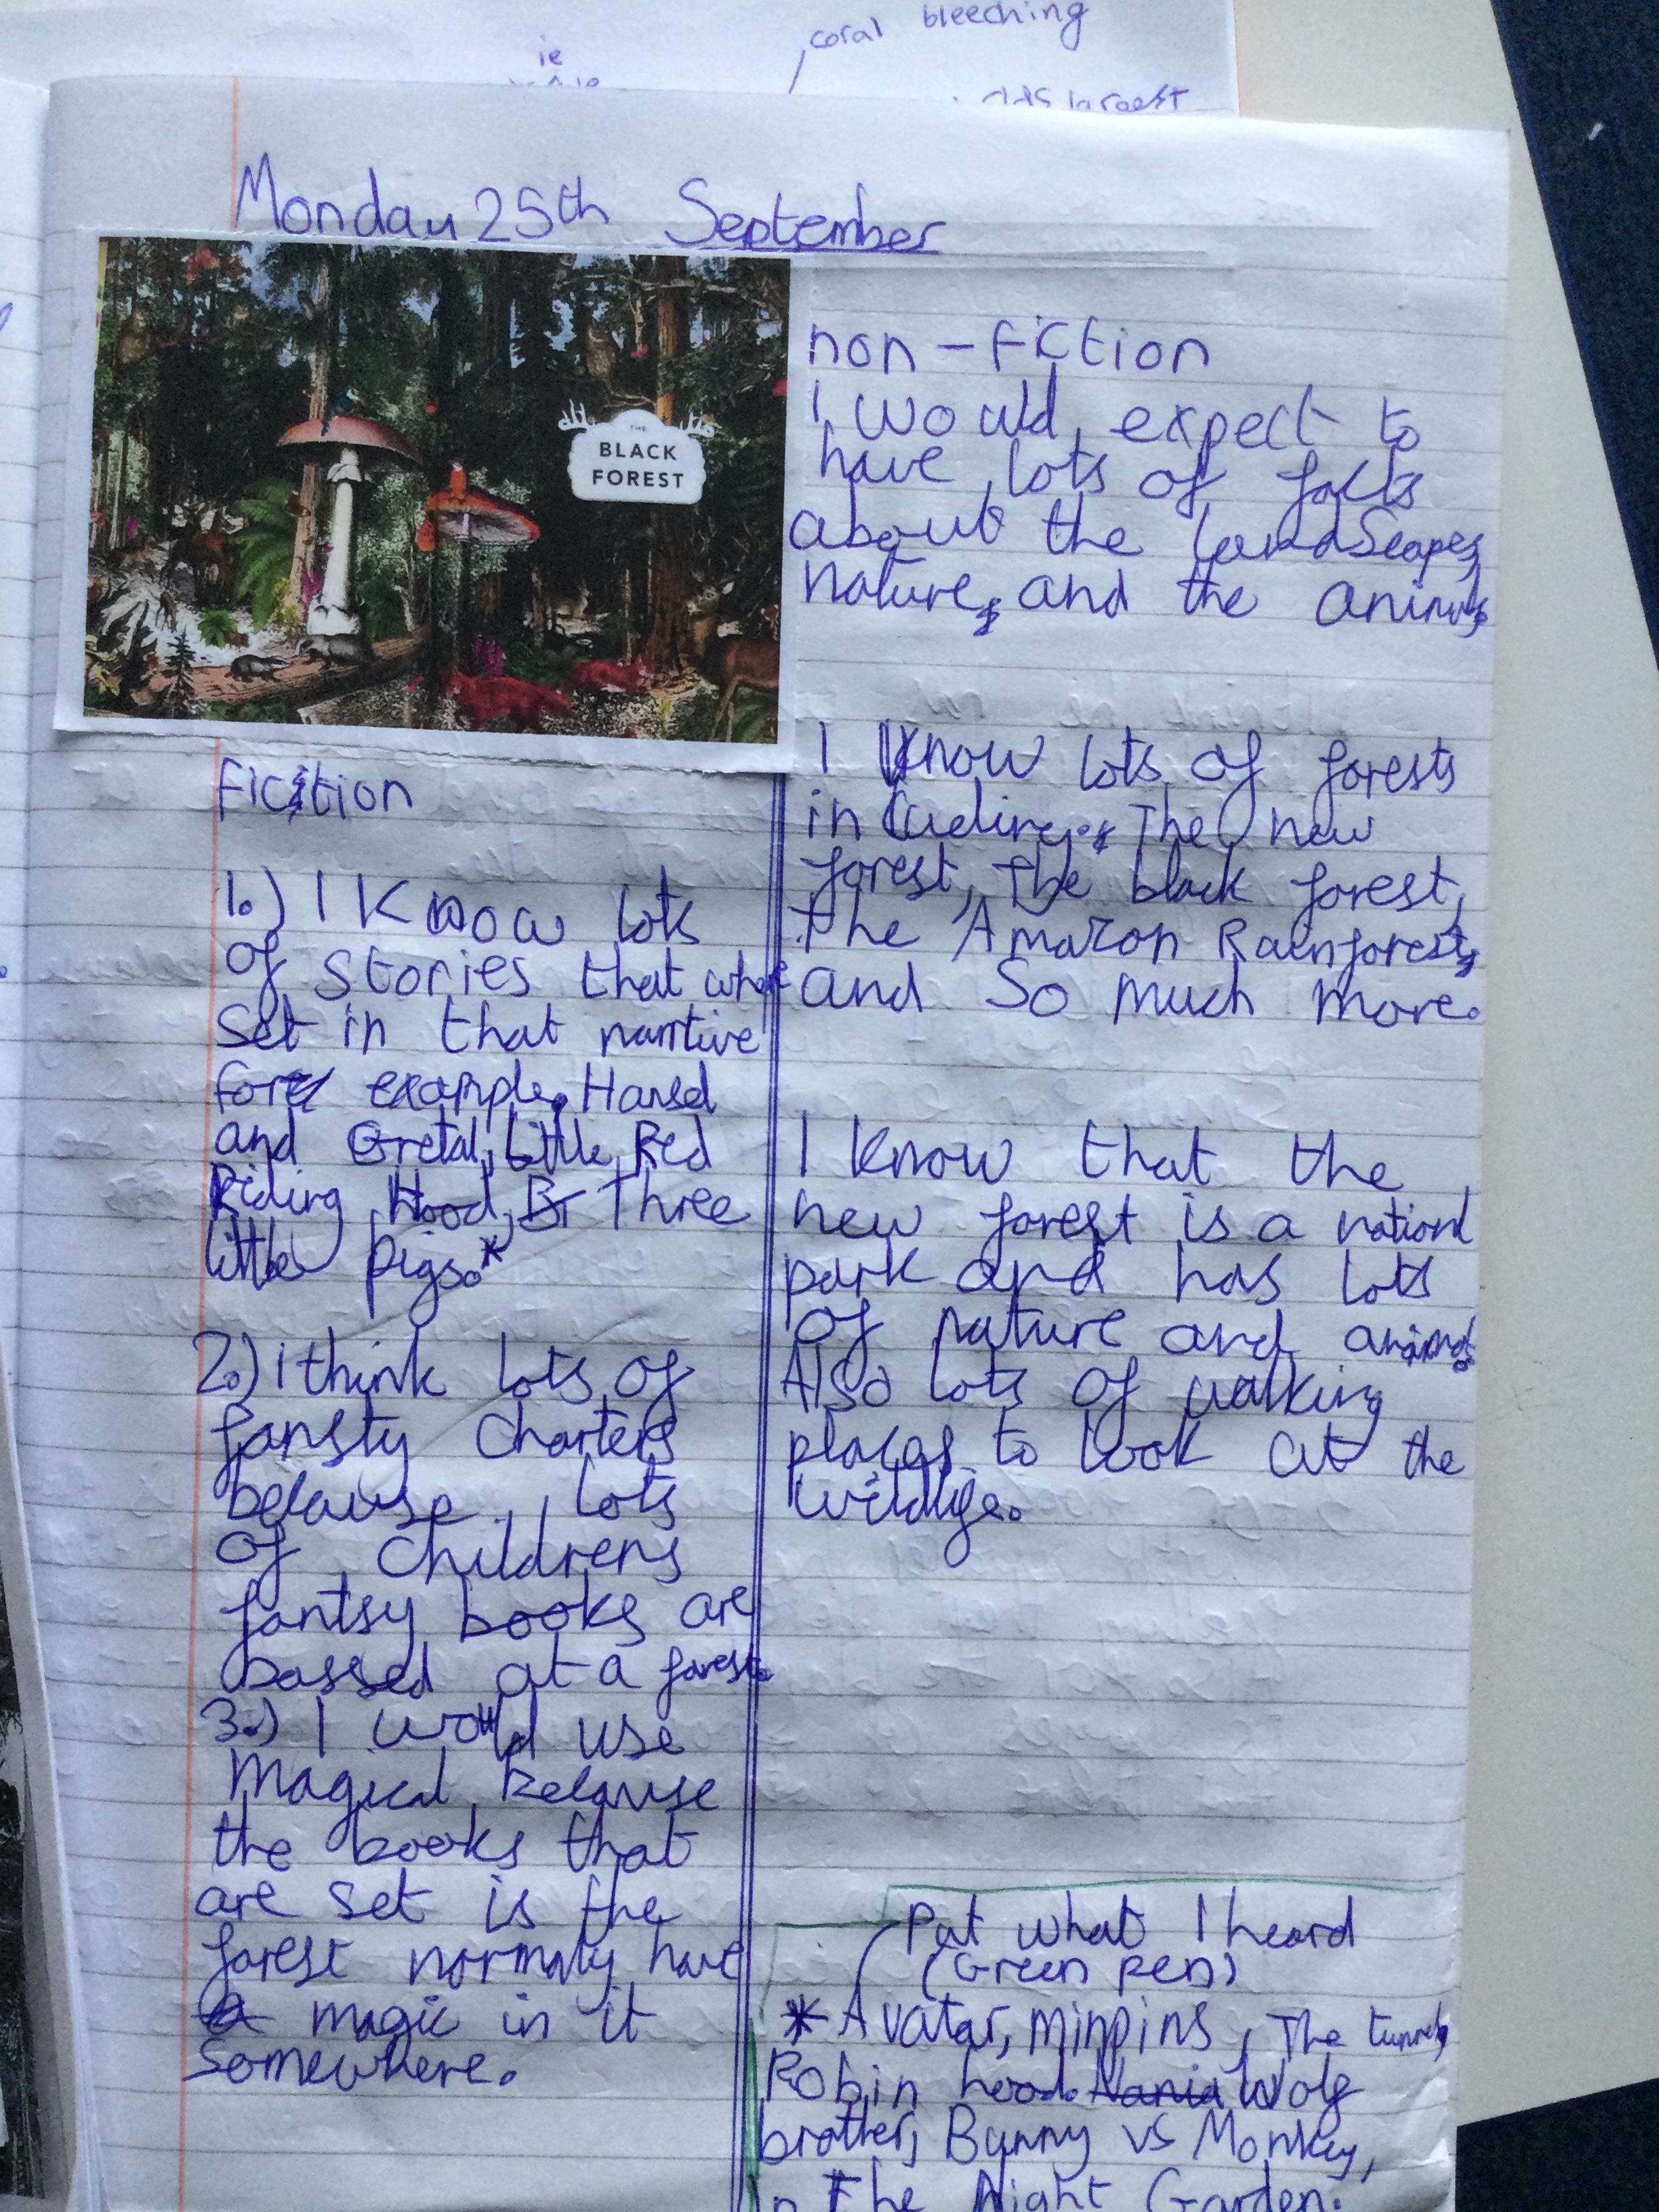 coral bleeching
ie
largest
Monday 25th September
THE
BLACK
FOREST
fiction
1.) I know lots
of stories that where
set in that narrtive
for example. Hansel
and Gretal, Little Red
Riding Hood, Br Three
little pigs.*
2.) I think lots of
fansty charters
because lots
of childrens
fantsy books are
bassed at a forest.
3.) I would use
magical because
the books that
are set is the
forest normaly have
a magic in it
somewhere.
non-fiction
I would expect to
have lots of facts
about the landscapes,
nature, and the animals
I know lots of forests
including. The new
forest, The black forest,
the Amazon Rainforest,
and so much more.
I know that the
new forest is a nationl
park and has lots
of nature and animals.
Also lots of walking
places to look at the
wildlife.
Put what I heard
(Green pen)
* Avatar, minpins, The tunnel,
Robin hood. Nania Wolf
brother, Bunny vs Monkey,
In The Night Garden.